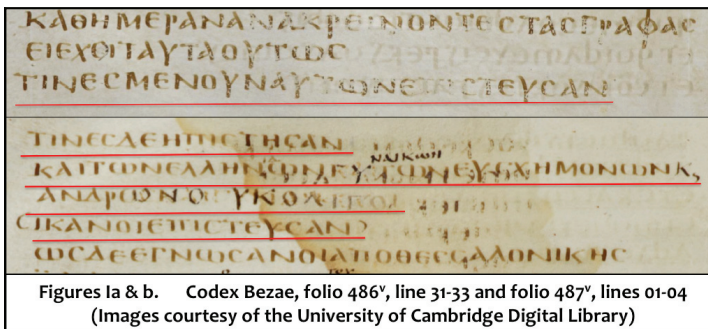 ΚΑΘΗΜΕΡΑΝΑΝΑΚΡΕΙΝΟΝΤΕϹΤΑϹΓΡΑΦΑϹ
ΕΙΕΧΟΙΤΑΥΤΑΟΥΤΩϹ
ΤΙΝΕϹΜΕΝΟΥΝΑΥΤΩΝΕΠΙϹΤΕΥϹΑΝ
ΤΙΝΕϹΔΕΗΠΙϹΤΗϹΑΝ
ΚΑΙΤΩΝΕΛΛΗΝΩΝ ΕΥϹΧΗΜΟΝΩΝΚ,
ΑΝΔΡΩΝ
ΙΚΑΝΟΙΕΠΙϹΤΕΥϹΑΝ
ΩϹΔΕΕΓΝΩϹΑΝΟΙΑΠΟΘΕϹϹΑΛΟΝΙΚΗϹ
Figures Ia & b. Codex Bezae, folio 486ᵛ, line 31-33 and folio 487ᵛ, lines 01-04
(Images courtesy of the University of Cambridge Digital Library)